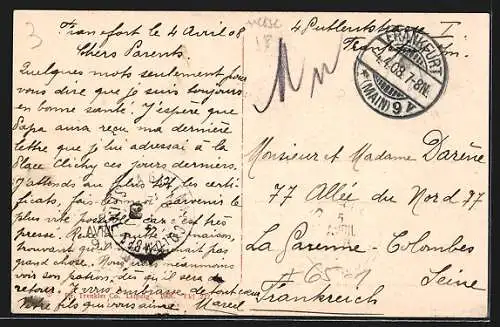 Francfort le 4 Avril 08
Chers Parents
Quelques mots seulement pour
vous dire que je suis toujours
en bonne santé. J'espère que
Papa aura reçu ma dernière
lettre que je lui adressai à la
Place Clichy ces jours derniers.
J'attends au plus tôt les certi-
ficats, fais-les moi parvenir le
plus vite possible car c'est très
presse.
maison,
trouvant qu'il
grand chose. Nous
voir son patron, dès qu'il sera de
retour. Je vous embrasse de tout cœur
Votre fils qui vous aime Marcel
Dr. Trenkler Co., Leipzig. 1906.
3
4
I
FRANKFURT
4.4.08. 7-8N.
* (MAIN) 9 v
Monsieur et Madame Darène
77 Allée du Nord 77
La Garenne-Colombes
Seine
Frankreich